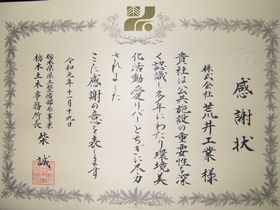 感謝状
株式会社 荒井工業 様
貴社は公共施設の重要性を深
く認識し多年にわたり環境美
化活動愛リバーとちぎに尽力
されました
ここに感謝の意を表します
令和元年十一月十九日
栃木県県土整備部参事兼
栃木土木事務所長
誠